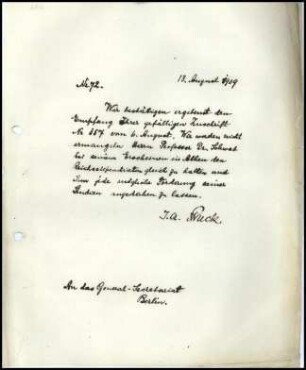 12. August 1909
No 72.
Wir bestätigen ergebenst den
Empfang Ihrer gefälligen Zuschrift
No 557 vom 6. August. Wir werden nicht
ermangeln Herrn Professor Dr.
bei seinem Erscheinen in Athen den
gleich zu halten und
ihm jede mögliche Förderung seiner
Studien angedeihen zu lassen.
I.A.
An das General-Secretariat
Berlin.